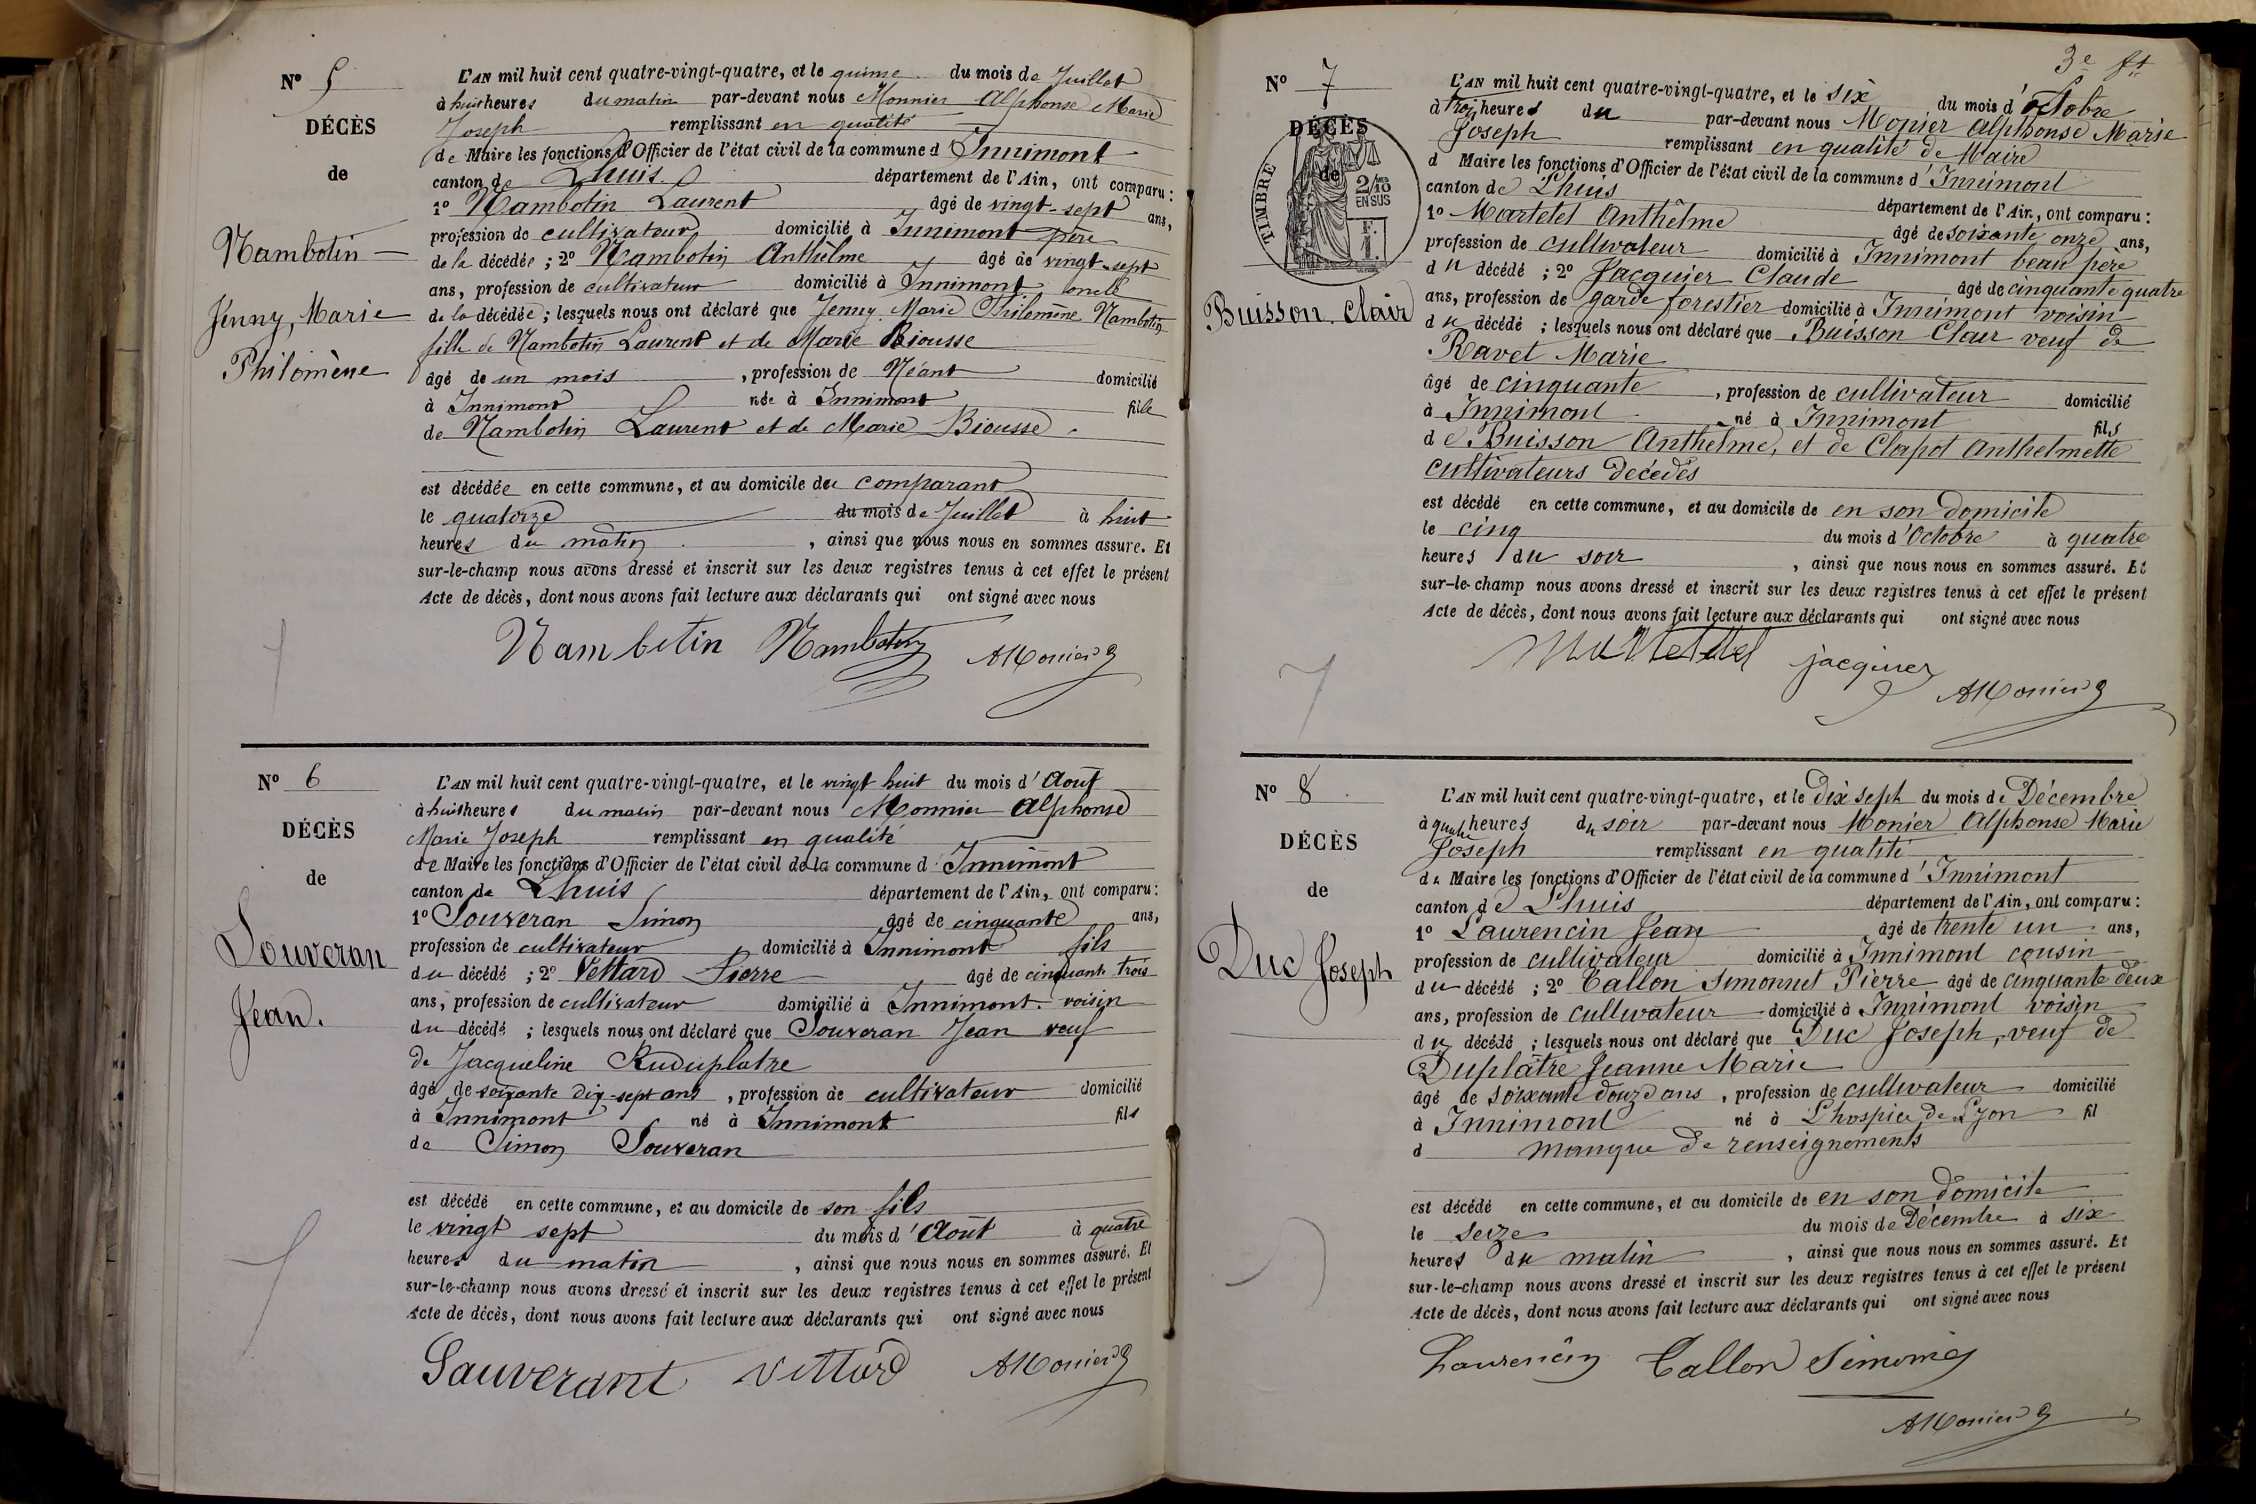 N° 5
DÉCÈS
de
Nambotin
Jenny, Marie
Philomène
L'AN mil huit cent quatre-vingt-quatre, et le quinze du mois de Juillet
à huit heures du matin par-devant nous Monnier Alphonse Marie
Joseph remplissant en qualité
de Maire les fonctions d'Officier de l'état civil de la commune d'Innimont
canton de Lhuis département de l'Ain, ont comparu :
1° Nambotin Laurent âgé de vingt-sept ans,
profession de cultivateur domicilié à Innimont père
de la décédée ; 2° Nambotin Anthelme âgé de vingt-sept
ans, profession de cultivateur domicilié à Innimont oncle
de la décédée ; lesquels nous ont déclaré que Jenny Marie Philomène Nambotin
fille de Nambotin Laurent et de Marie Biousse
âgé de un mois , profession de Néant domicilié
à Innimont née à Innimont fille
de Nambotin Laurent et de Marie Biousse.
est décédée en cette commune, et au domicile du comparant
le quatorze du mois de Juillet à huit
heures du matin , ainsi que nous nous en sommes assuré. Et
sur-le-champ nous avons dressé et inscrit sur les deux registres tenus à cet effet le présent
Acte de décès, dont nous avons fait lecture aux déclarants qui ont signé avec nous
Nambotin Nambotin AMonier
N° 6
DÉCÈS
de
Souveran
Jean.
L'AN mil huit cent quatre-vingt-quatre, et le vingt huit du mois d'Août
à huit heures du matin par-devant nous Monnier Alphonse
Marie Joseph remplissant en qualité
de Maire les fonctions d'Officier de l'état civil de la commune d'Innimont
canton de Lhuis département de l'Ain, ont comparu :
1° Souveran Simon âgé de cinquante ans,
profession de cultivateur domicilié à Innimont fils
du décédé ; 2° Vettard Pierre âgé de cinquante trois
ans, profession de cultivateur domicilié à Innimont voisin
du décédé ; lesquels nous ont déclaré que Souveran Jean veuf
de Jacqueline Ruduplatre
âgé de soixante dix-sept ans , profession de cultivateur domicilié
à Innimont né à Innimont fils
de Simon Souveran
est décédé en cette commune, et au domicile de son fils
le vingt sept du mois d'Août à quatre
heures du matin , ainsi que nous nous en sommes assuré. Et
sur-le-champ nous avons dressé et inscrit sur les deux registres tenus à cet effet le présent
Acte de décès, dont nous avons fait lecture aux déclarants qui ont signé avec nous
Sauverant Vettard AMonier
3e ft
N° 7
DÉCÈS
de
TIMBRE
2/10 EN SUS
F. 1.
Buisson Clair
L'AN mil huit cent quatre-vingt-quatre, et le six du mois d'octobre
à trois heures du par-devant nous Monier Alphonse Marie
Joseph remplissant en qualité de Maire
d Maire les fonctions d'Officier de l'état civil de la commune d'Innimont
canton de Lhuis département de l'Ain, ont comparu :
1° Martelet Anthelme âgé de soixante onze ans,
profession de cultivateur domicilié à Innimont beau père
du décédé ; 2° Jacquier Claude âgé de cinquante quatre
ans, profession de garde forestier domicilié à Innimont voisin
du décédé ; lesquels nous ont déclaré que Buisson Clair veuf de
Ravet Marie
âgé de cinquante , profession de cultivateur domicilié
à Innimont né à Innimont fils
de Buisson Anthelme, et de Clapot Anthelmette
cultivateurs decedés
est décédé en cette commune, et au domicile de en son domicile
le cinq du mois d'Octobre à quatre
heures du soir , ainsi que nous nous en sommes assuré. Et
sur-le-champ nous avons dressé et inscrit sur les deux registres tenus à cet effet le présent
Acte de décès, dont nous avons fait lecture aux déclarants qui ont signé avec nous
jacquier
AMonier
N° 8
DÉCÈS
de
Duc Joseph
L'AN mil huit cent quatre-vingt-quatre, et le dix sept du mois de Décembre
à quatre heures du soir par-devant nous Monier Alphonse Marie
Joseph remplissant en qualité
de Maire les fonctions d'Officier de l'état civil de la commune d'Innimont
canton de Lhuis département de l'Ain, ont comparu :
1° Laurencin Jean âgé de trente un ans,
profession de cultivateur domicilié à Innimont cousin
du décédé ; 2° Tallon Simonnet Pierre âgé de cinquante deux
ans, profession de cultivateur domicilié à Innimont voisin
du décédé ; lesquels nous ont déclaré que Duc Joseph, veuf de
Duplâtre Jeanne Marie
âgé de soixante douze ans , profession de cultivateur domicilié
à Innimont né à L'hospice de Lyon fil
d manque de renseignements
est décédé en cette commune, et au domicile de en son domicile
le seize du mois de Décembre à six
heures du matin , ainsi que nous nous en sommes assuré. Et
sur-le-champ nous avons dressé et inscrit sur les deux registres tenus à cet effet le présent
Acte de décès, dont nous avons fait lecture aux déclarants qui ont signé avec nous
Laurencin Tallon
AMonier